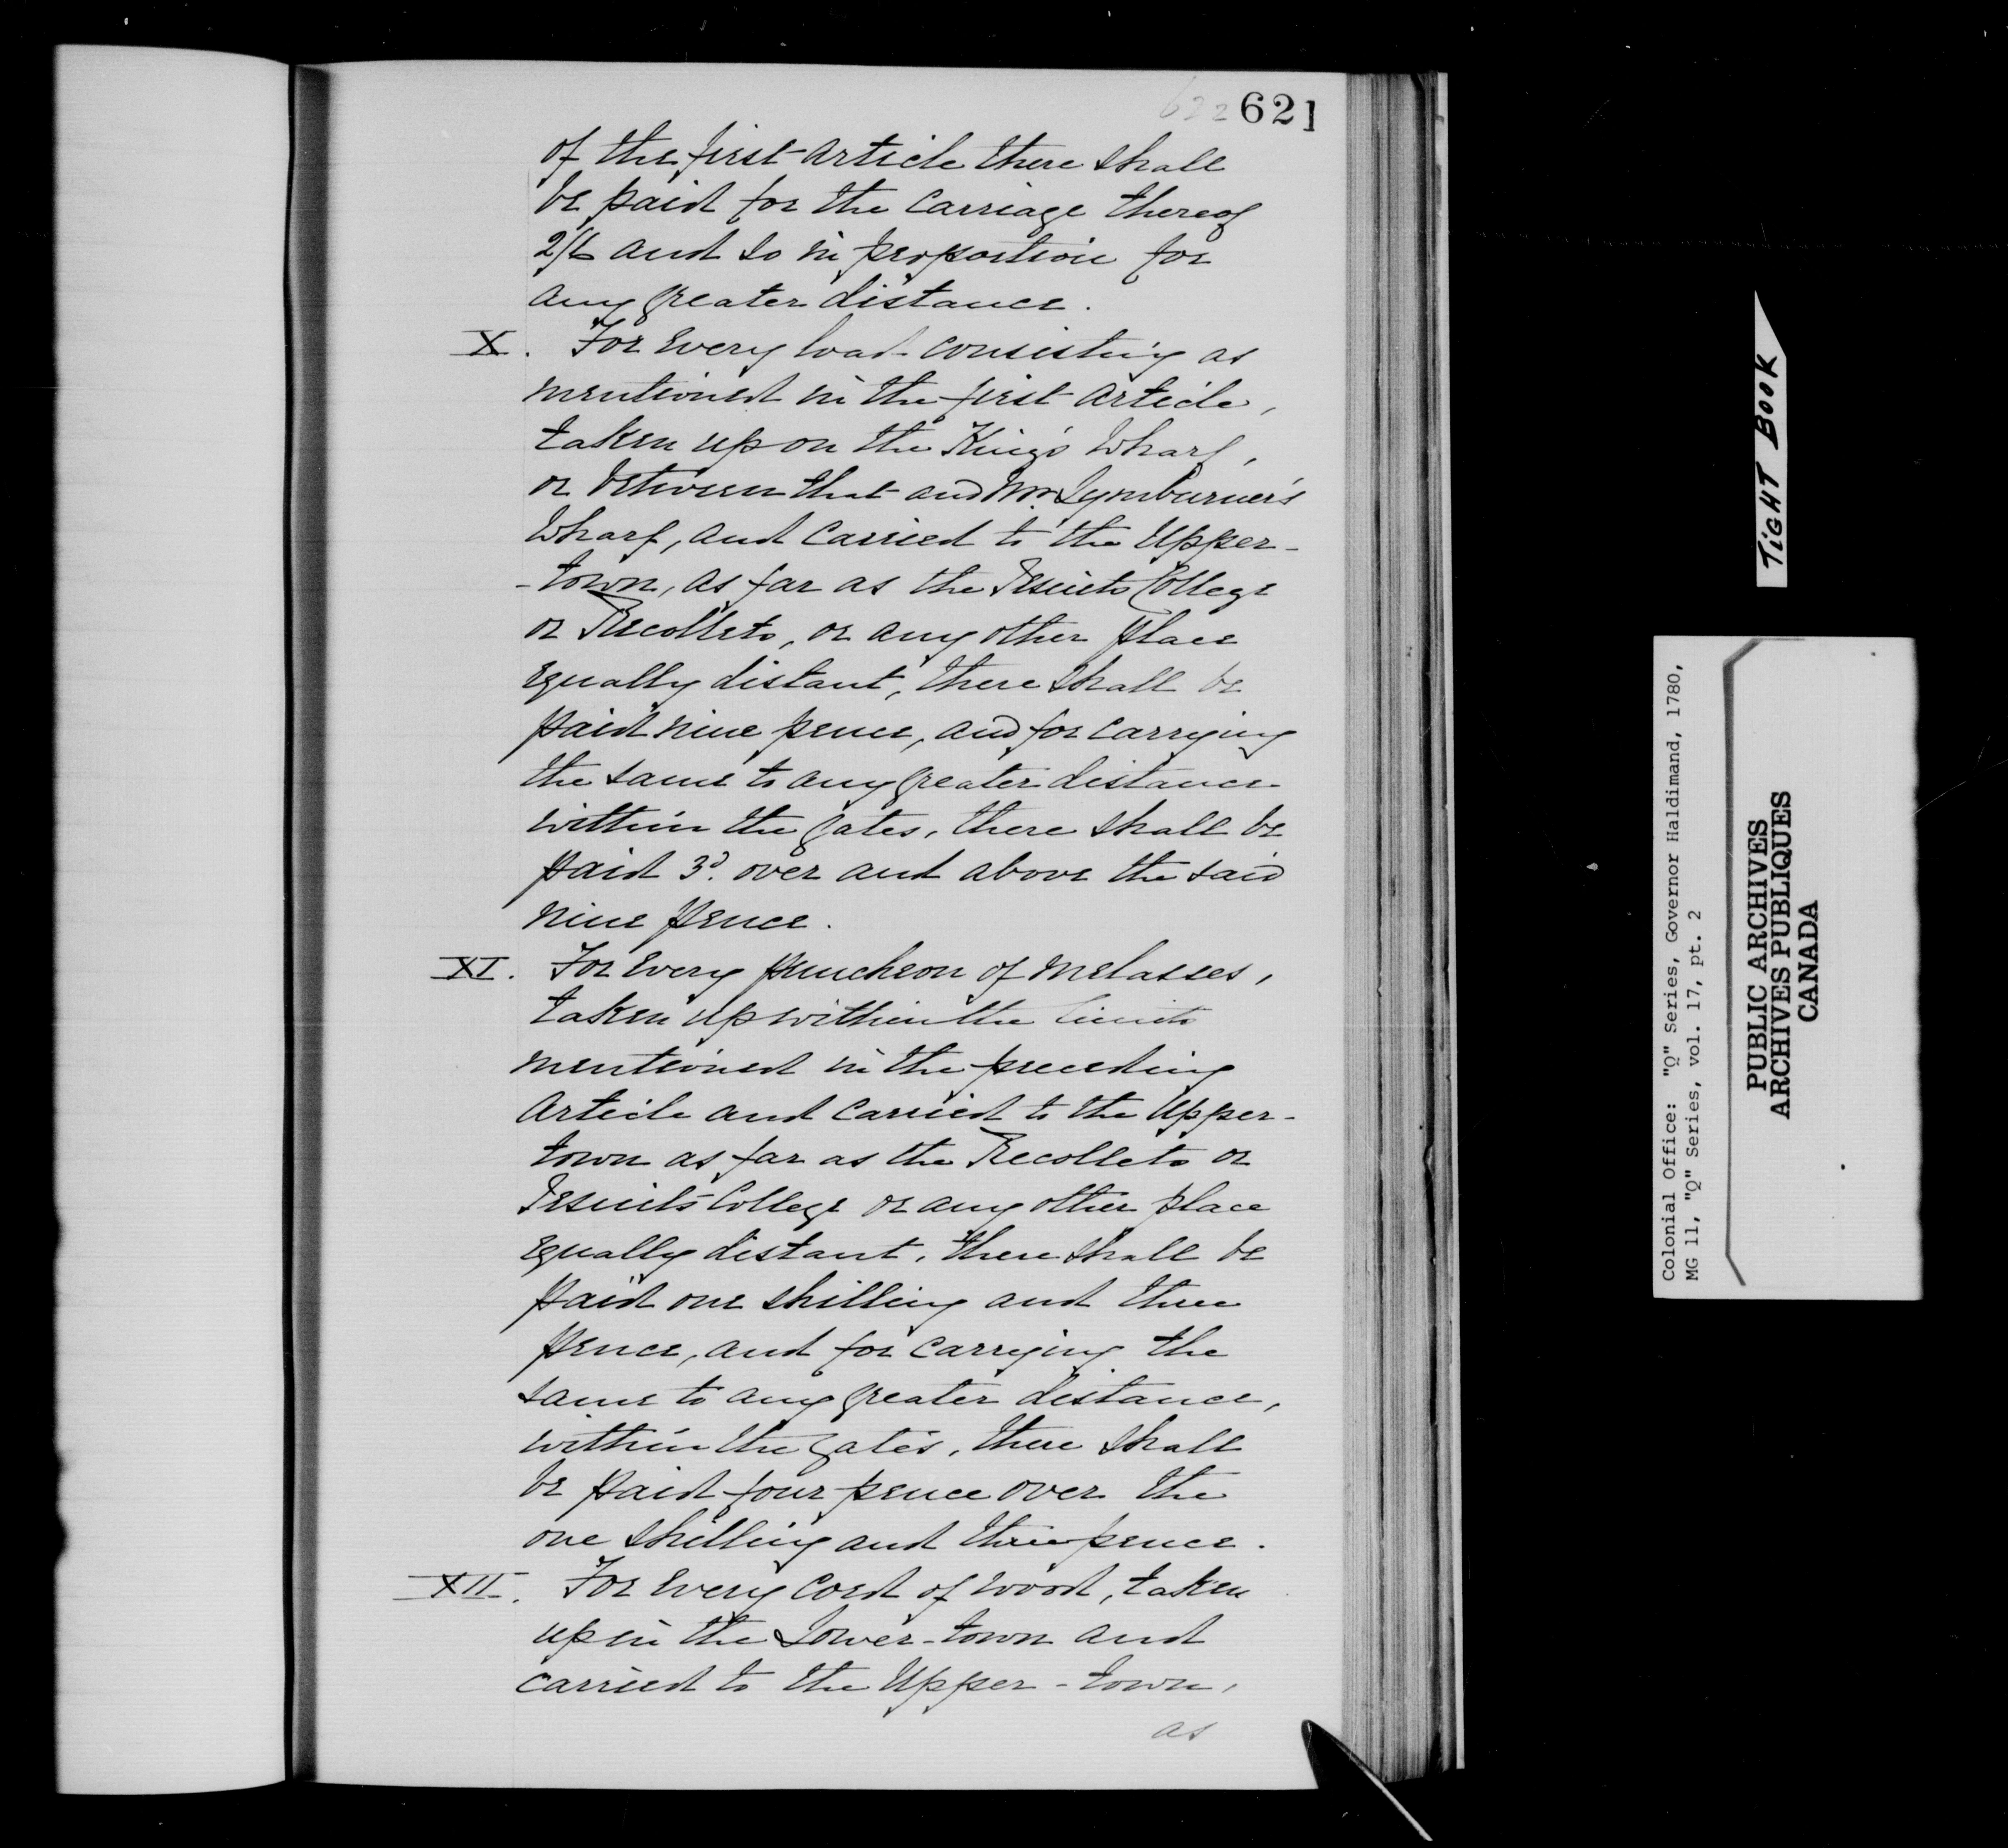 622 621
of the first article there shall
be paid for the carriage thereof
2/6 and so in proportion for
any greater distance.
X. For every load consisting as
mentioned in the first article,
taken up on the King's Wharf,
or between that and Mr. Lymburner's
Wharf, and carried to the Upper-
-town, as far as the Jesuits College
or Recollets, or any other place
equally distant, there shall be
paid nine pence, and for carrying
the same to any greater distance
within the gates, there shall be
paid 3d. over and above the said
nine pence.
XI. For every puncheon of melasses,
taken up within the limits
mentioned in the preceding
article and carried to the Upper-
town as far as the Recollets or
Jesuits College or any other place
equally distant, there shall be
paid one shilling and three
pence, and for carrying the
same to any greater distance,
within the gates, there shall
be paid four pence over the
one shilling and three pence.
XII. For every cord of wood, taken
up in the Lower-town and
carried to the Upper-town,
as
TIGHT BOOK
Colonial Office: "Q" Series, Governor Haldimand, 1780,
MG 11, "Q" Series, vol. 17, pt. 2
PUBLIC ARCHIVES
ARCHIVES PUBLIQUES
CANADA